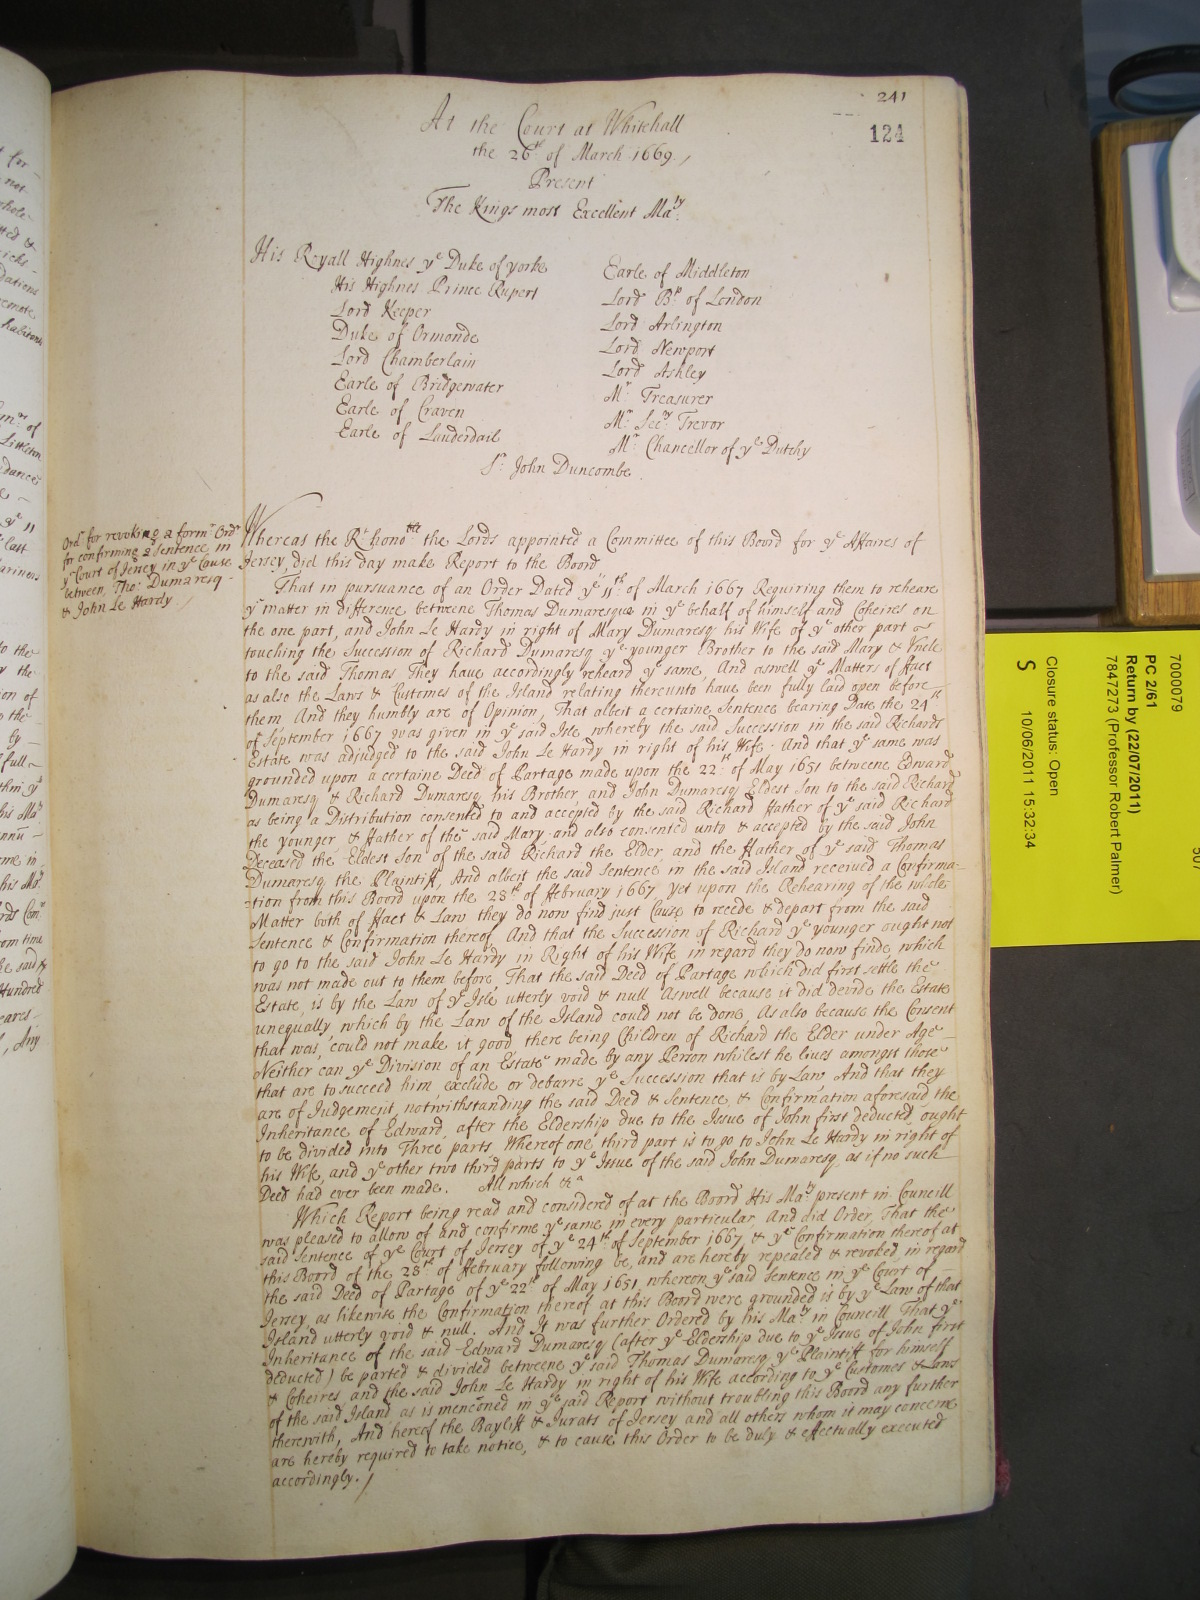 241
124
At the Court at Whitehall
the 26th of March 1669./
Present
The Kings most Excellent Maty.
His Royall Highnes ye Duke of yorke
His Highnes Prince Rupert
Lord Keeper
Duke of Ormonde
Lord Chamberlain
Earle of Bridgewater
Earle of Craven
Earle of Lauderdail
Earle of Middleton
Lord Bp of London
Lord Arlington
Lord Newport
Lord Ashley
Mr Treasurer
Mr Secry Trevor
Mr Chancellor of ye Dutchy
Sr John Duncombe.
Ordr for revoking a formr Ordr
for confirming a Sentence in
ye Court of Jersey in ye Cause
between, Tho: Dumaresq -
& John Le Hardy /
Whereas the Rt honoble the Lords appointed a Committee of this Board for ye Affaires of
Jersey, did this day make Report to the Board
That in pursuance of an Order Dated ye 11th of March 1667 Requiring them to reheare
ye matter in difference betweene Thomas Dumaresque in ye behalf of himself and Coheires on
the one part, and John Le Hardy in right of Mary Dumaresq his Wife of ye other part
touching the Succession of Richard Dumaresq ye younger Brother to the said Mary & Vncle
to the said Thomas They have accordingly reheard ye same, And aswell ye Matters of ffact
as also the Laws & Customes of the Island relating thereunto have been fully laid open before
them And they humbly are of Opinion, That albeit a certaine Sentence bearing Date the 24th
of September 1667 was given in ye said Isle whereby the said Succession in the said Richards
Estate was adjudged to the said John Le Hardy in right of his Wife. And that ye same was
grounded upon a certaine Deed of Partage made upon the 22th of May 1651 betweene Edward
Dumaresq & Richard Dumaresq his Brother and John Dumaresq Eldest Son to the said Richard
as being a Distribution consented to and accepted by the said Richard ffather of ye said Richard
the younger & ffather of the said Mary and also consented unto & accepted by the said John
Deceased the Eldest Son of the said Richard the Elder, and the ffather of ye said Thomas
Dumaresq the Plaintiff, And albeit the said Sentence in the said Island received a Confirma-
-tion from this Board upon the 28th of ffebruary 1667, Yet upon the Rehearing of the whole
Matter both of ffact & Law they do now find just Cause to recede & depart from the said
Sentence & Confirmation thereof And that the Succession of Richard ye younger ought not
to go to the said John Le Hardy in Right of his Wife in regard they do now finde, which
was not made out to them before, That the said Deed of Partage which did first settle the
Estate, is by the Law of ye Isle utterly void & null Aswell because it did devide the Estate
unequally, which by the Law of the Island could not be done, As also because the Consent
that was, could not make it good, there being Children of Richard the Elder under Age
Neither can ye Division of an Estate made by any Person whilest he lives amongst those
that are to succeed him, exclude or debarre ye Succession that is by Law And that they
are of Judgement, notwithstanding the said Deed & Sentence, & Confirmation aforesaid the
Inheritance of Edward, after the Eldership due to the Issue of John first deducted, ought
to be divided into Three parts Whereof one third part is to go to John Le Hardy in right of
his Wife, and ye other two third parts to ye Issue of the said John Dumaresq, as if no such
Deed had ever been made. All which &ca
Which Report being read and considered of at the Board His Maty present in Councill
was pleased to allow of and confirme ye same in every particular, And did Order, That the
said Sentence of ye Court of Jersey of ye 24th of September 1667, & ye Confirmation thereof at
this Board of the 28th of ffebruary following be, and are hereby repealed & revoked, in regard
the said Deed of Partage of ye 22th of May 1651, whereon ye said Sentence in ye Court of
Jersey, as likewise the Confirmation thereof at this Board were grounded is by ye Law of that
Island utterly void & null. And It was further Ordered by his Maty in Councill That ye
Inheritance of the said Edward Dumaresq (after ye Eldership due to ye Issue of John first
deducted) be parted & divided betweene ye said Thomas Dumaresq ye Plaintiff for himself
& Coheires, and the said John Le Hardy in right of his Wife according to ye Customes & Laws
of the said Island, as is menconed in ye said Report without troubling this Board any further
therewith, And hereof the Bayliff & Jurats of Jersey and all others whom it may concerne
are hereby required to take notice, & to cause this Order to be duly & effectually executed
accordingly. /
7000079
PC 2/61
Return by (22/07/2011)
7847273 (Professor Robert Palmer)
Closure status: Open
S 10/06/2011 15:32:34